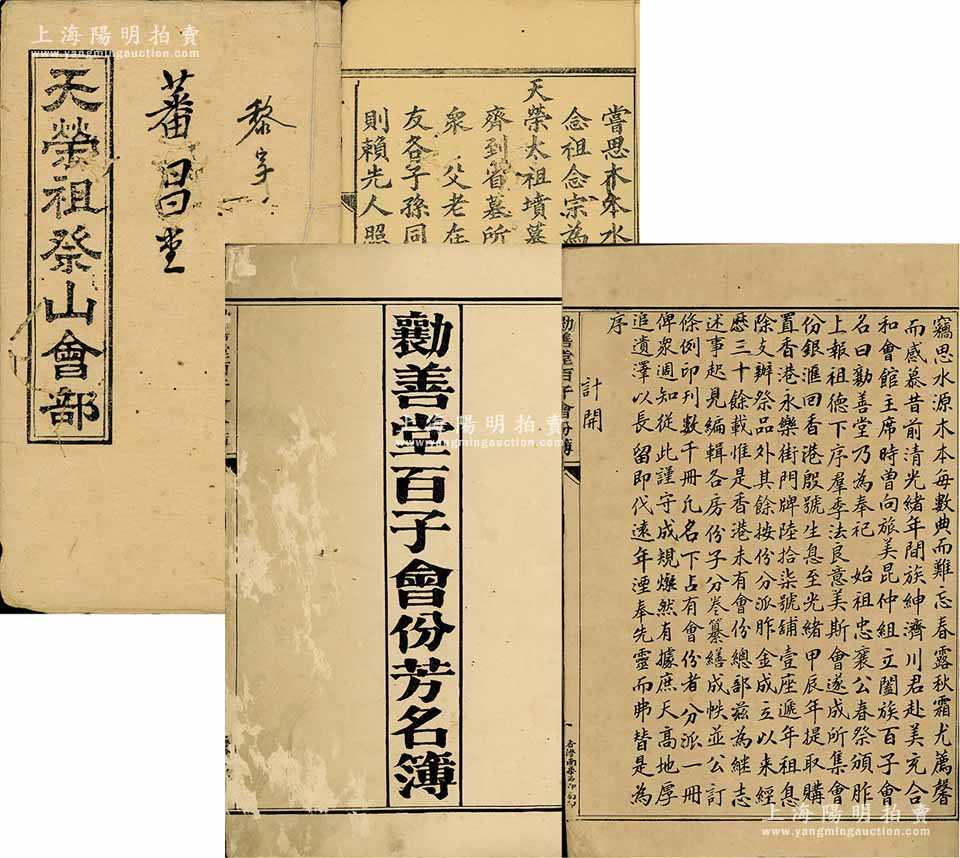 上海陽明拍賣
www.yangmingauction.com
黎字
蕃昌堂
天榮祖祭山會部
嘗思木本水
念祖念宗為
天榮太祖墳墓
齊到省墓所
衆 父老在
友各子孫同
則賴先人照
勸善堂百子會份芳名簿
竊思水源木本每數典而難忘春露秋霜尤薦馨
而感慕昔前清光緒年間族紳濟川君赴美充合
和會館主席時曾向旅美昆仲組立闔族百子會
名曰勸善堂乃為奉祀 始祖忠襄公春祭頒胙
上報祖德下序羣季法良意美斯會遂成所集會
份銀滙回香港殷號生息至光緒甲辰年提取購
置香港永樂街門牌陸拾柒號舖壹座遞年租息
除支辦祭品外其餘按份分派胙金成立以來經
歷三十餘載惟是香港未有會份總部茲為繼志
述事起見編輯各房份子分巻纂繕成帙並公訂
條例印刊數千冊凢名下占有會份者分派一冊
俾衆週知從此謹守成規燦然有據庶天高地厚
追遺澤以長留即代遠年湮奉先靈而弗替是為
序
計開
上海陽明拍賣
www.yangmingauction.com